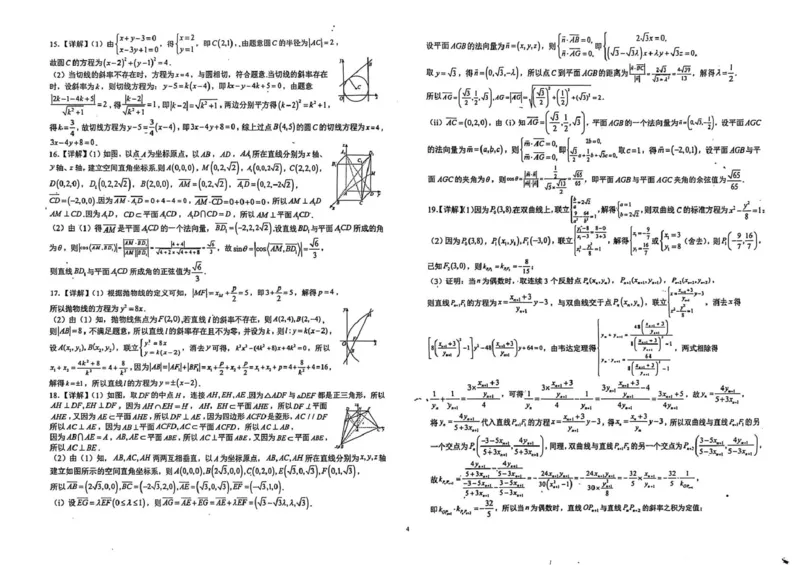 15.【详解】(1)由{x+y-3=0 x-3y+1=0,得{x=2 y=1,即C(2,1),由题意圆C的半径为|AC|=2,
故圆C的方程为(x-2)²+(y-1)²=4.
(2)当切线的斜率不存在时,方程为x=4,与圆相切,符合题意.当切线的斜率存在
时,设斜率为k,则切线方程为y-5=k(x-4),即kx-y-4k+5=0,由题意
|2k-1-4k+5|/√(k²+1)=2,得|k-2|/√(k²+1)=1,即|k-2|=√(k²+1),两边分别平方得(k-2)²=k²+1,
得k=3/4,故切线方程为y-5=3/4(x-4),即3x-4y+8=0,综上过点B(4,5)的圆C的切线方程为x=4,
3x-4y+8=0.
16.【详解】(1)如图,以点A为坐标原点,以AB,AD,AA₁所在直线分别为x轴、
y轴、z轴,建立空间直角坐标系,则A(0,0,0),M(0,2,√2),A₁(0,0,2√2),C(2,2,0),
D(0,2,0),D₁(0,2,2√2),B(2,0,0),AM=(0,2,√2),A₁D=(0,2,-2√2),
CD=(-2,0,0).因为AM·A₁D=0+4-4=0,AM·CD=0+0+0=0,所以AM⊥A₁D
AM⊥CD.因为A₁D,CD⊂平面A₁CD,A₁D∩CD=D,所以AM⊥平面A₁CD.
(2)由(1)得AM是平面A₁CD的一个法向量,BD₁=(-2,2,2√2),设直线BD₁与平面A₁CD所成的角
为θ,则|cos⟨AM,BD₁⟩|=|AM·BD₁|/|AM||BD₁|=|4+4|/(√(4+2)×√(4+4+8))=√6/3,故sinθ=|cos⟨AM,BD₁⟩|=√6/3,
则直线BD₁与平面A₁CD所成角的正弦值为√6/3.
17.【详解】(1)根据抛物线的定义可知,|MF|=x_M+p/2=5,即3+p/2=5,解得p=4,
所以抛物线的方程为y²=8x.
(2)由(1)知,抛物线焦点为F(2,0),若直线l的斜率不存在,则A(2,4),B(2,-4),
则|AB|=8,不满足题意,所以直线l的斜率存在且不为零,并设为k,则l:y=k(x-2),
设A(x₁,y₁),B(x₂,y₂),联立{y²=8x y=k(x-2),消去y可得,k²x²-(4k²+8)x+4k²=0,所以
x₁+x₂=(4k²+8)/k²=4+8/k²,因为|AB|=|AF|+|BF|=x₁+p/2+x₂+p/2=x₁+x₂+p=4+8/k²+4=16,
解得k=±1,所以直线l的方程为y=±(x-2).
18.【详解】(1)如图,取DF的中点H,连接AH,EH,AE.因为△ADF与△DEF都是正三角形,所以
AH⊥DF,EH⊥DF,因为AH∩EH=H,AH,EH⊂平面AHE,所以DF⊥平面
AHE,又因为AE⊂平面AHE,所以DF⊥AE,因为四边形ACFD是菱形,AC//DF
所以AC⊥AE,因为AB⊥平面ACFD,AC⊂平面ACFD,所以AC⊥AB,
因为AB∩AE=A,AB,AE⊂平面ABE,所以AC⊥平面ABE,又因为BE⊂平面ABE,
所以AC⊥BE.
(2)由(1)知,AB,AC,AH两两互相垂直,以A为坐标原点,AB,AC,AH所在直线分别为x,y,z轴
建立如图所示的空间直角坐标系,则A(0,0,0),B(2√3,0,0),C(0,2,0),E(√3,0,√3),F(0,1,√3),
所以AB=(2√3,0,0),BC=(-2√3,2,0),AE=(√3,0,√3),EF=(-√3,1,0).
(i)设EG=λEF(0≤λ≤1),则AG=AE+EG=AE+λEF=(√3-√3λ,λ,√3).
设平面AGB的法向量为n=(x,y,z),则{n·AB=0, n·AG=0,即{2√3x=0, (√3-√3λ)x+λy+√3z=0,
取y=√3,得n=(0,√3,-λ),所以点C到平面AGB的距离为|n·BC|/|n|=2√3/√(3+λ²)=4√39/13,解得λ=1/2.
所以AG=(√3/2,1/2,√3),AG=|AG|=√((√3/2)²+(1/2)²+(√3)²)=2.
(ii)AC=(0,2,0),由(i)知AG=(√3/2,1/2,√3),平面AGB的一个法向量为n=(0,√3,-1/2),设平面AGC
的法向量为m=(a,b,c),则{m·AC=0, m·AG=0,即{2b=0, √3/2a+1/2b+√3c=0,取c=1,得m=(-2,0,1),设平面AGB与平
面AGC的夹角为θ,则cosθ=|m·n|/|m||n|=(1/2)/(√5×√13/2)=√65/65,即平面AGB与平面AGC夹角的余弦值为√65/65.
19.【详解】(1)因为P₁(3,8)在双曲线上,联立{b=2√2a 9/a²-64/b²=1,解得{a=1 b=2√2,则双曲线C的标准方程为x²-y²/8=1;
(2)因为P₁(3,8),P₂(x₂,y₂),F₁(-3,0),联立,解得{x₂=-9/7 y₂=16/7或{x₂=3 y₂=8(舍去),则P₂(-9/7,16/7),
已知F₂(3,0),则k=k=-8/15;
(3)证明:当n为偶数时,取连续3个反射点Pₙ(xₙ,yₙ),Pₙ₊₁(xₙ₊₁,yₙ₊₁),Pₙ₊₂(xₙ₊₂,yₙ₊₂),
则直线Pₙ₊₁F₁的方程为x=(xₙ₊₁+3)/yₙ₊₁ y-3,与双曲线交于点Pₙ(xₙ,yₙ),联立{x=(xₙ₊₁+3)/yₙ₊₁ y-3 x²-y²/8=1,消去x得
[8((xₙ₊₁+3)/yₙ₊₁)²-1]y²-48((xₙ₊₁+3)/yₙ₊₁)y+64=0,由韦达定理得,两式相除得
1/yₙ+1/yₙ₊₁=(3×(xₙ₊₁+3)/yₙ₊₁)/4,可得1/yₙ=(3×(xₙ₊₁+3)/yₙ₊₁)/4-1/yₙ₊₁=(3xₙ₊₁+5)/4yₙ₊₁,故yₙ=4yₙ₊₁/(5+3xₙ₊₁),
将yₙ=4yₙ₊₁/(5+3xₙ₊₁)代入直线Pₙ₊₁F₁的方程x=(xₙ₊₁+3)/yₙ₊₁ y-3,所以双曲线与直线Pₙ₊₁F₁的另
一个交点为Pₙ((-3-5xₙ₊₁)/(5+3xₙ₊₁),4yₙ₊₁/(5+3xₙ₊₁)),同理,双曲线与直线Pₙ₊₁F₂的另一个交点为Pₙ₊₂((3-5xₙ₊₁)/(5-3xₙ₊₁),4yₙ₊₁/(5-3xₙ₊₁)),
即,所以当n为偶数时,直线OPₙ₊₁与直线PₙPₙ₊₂的斜率之积为定值;
4